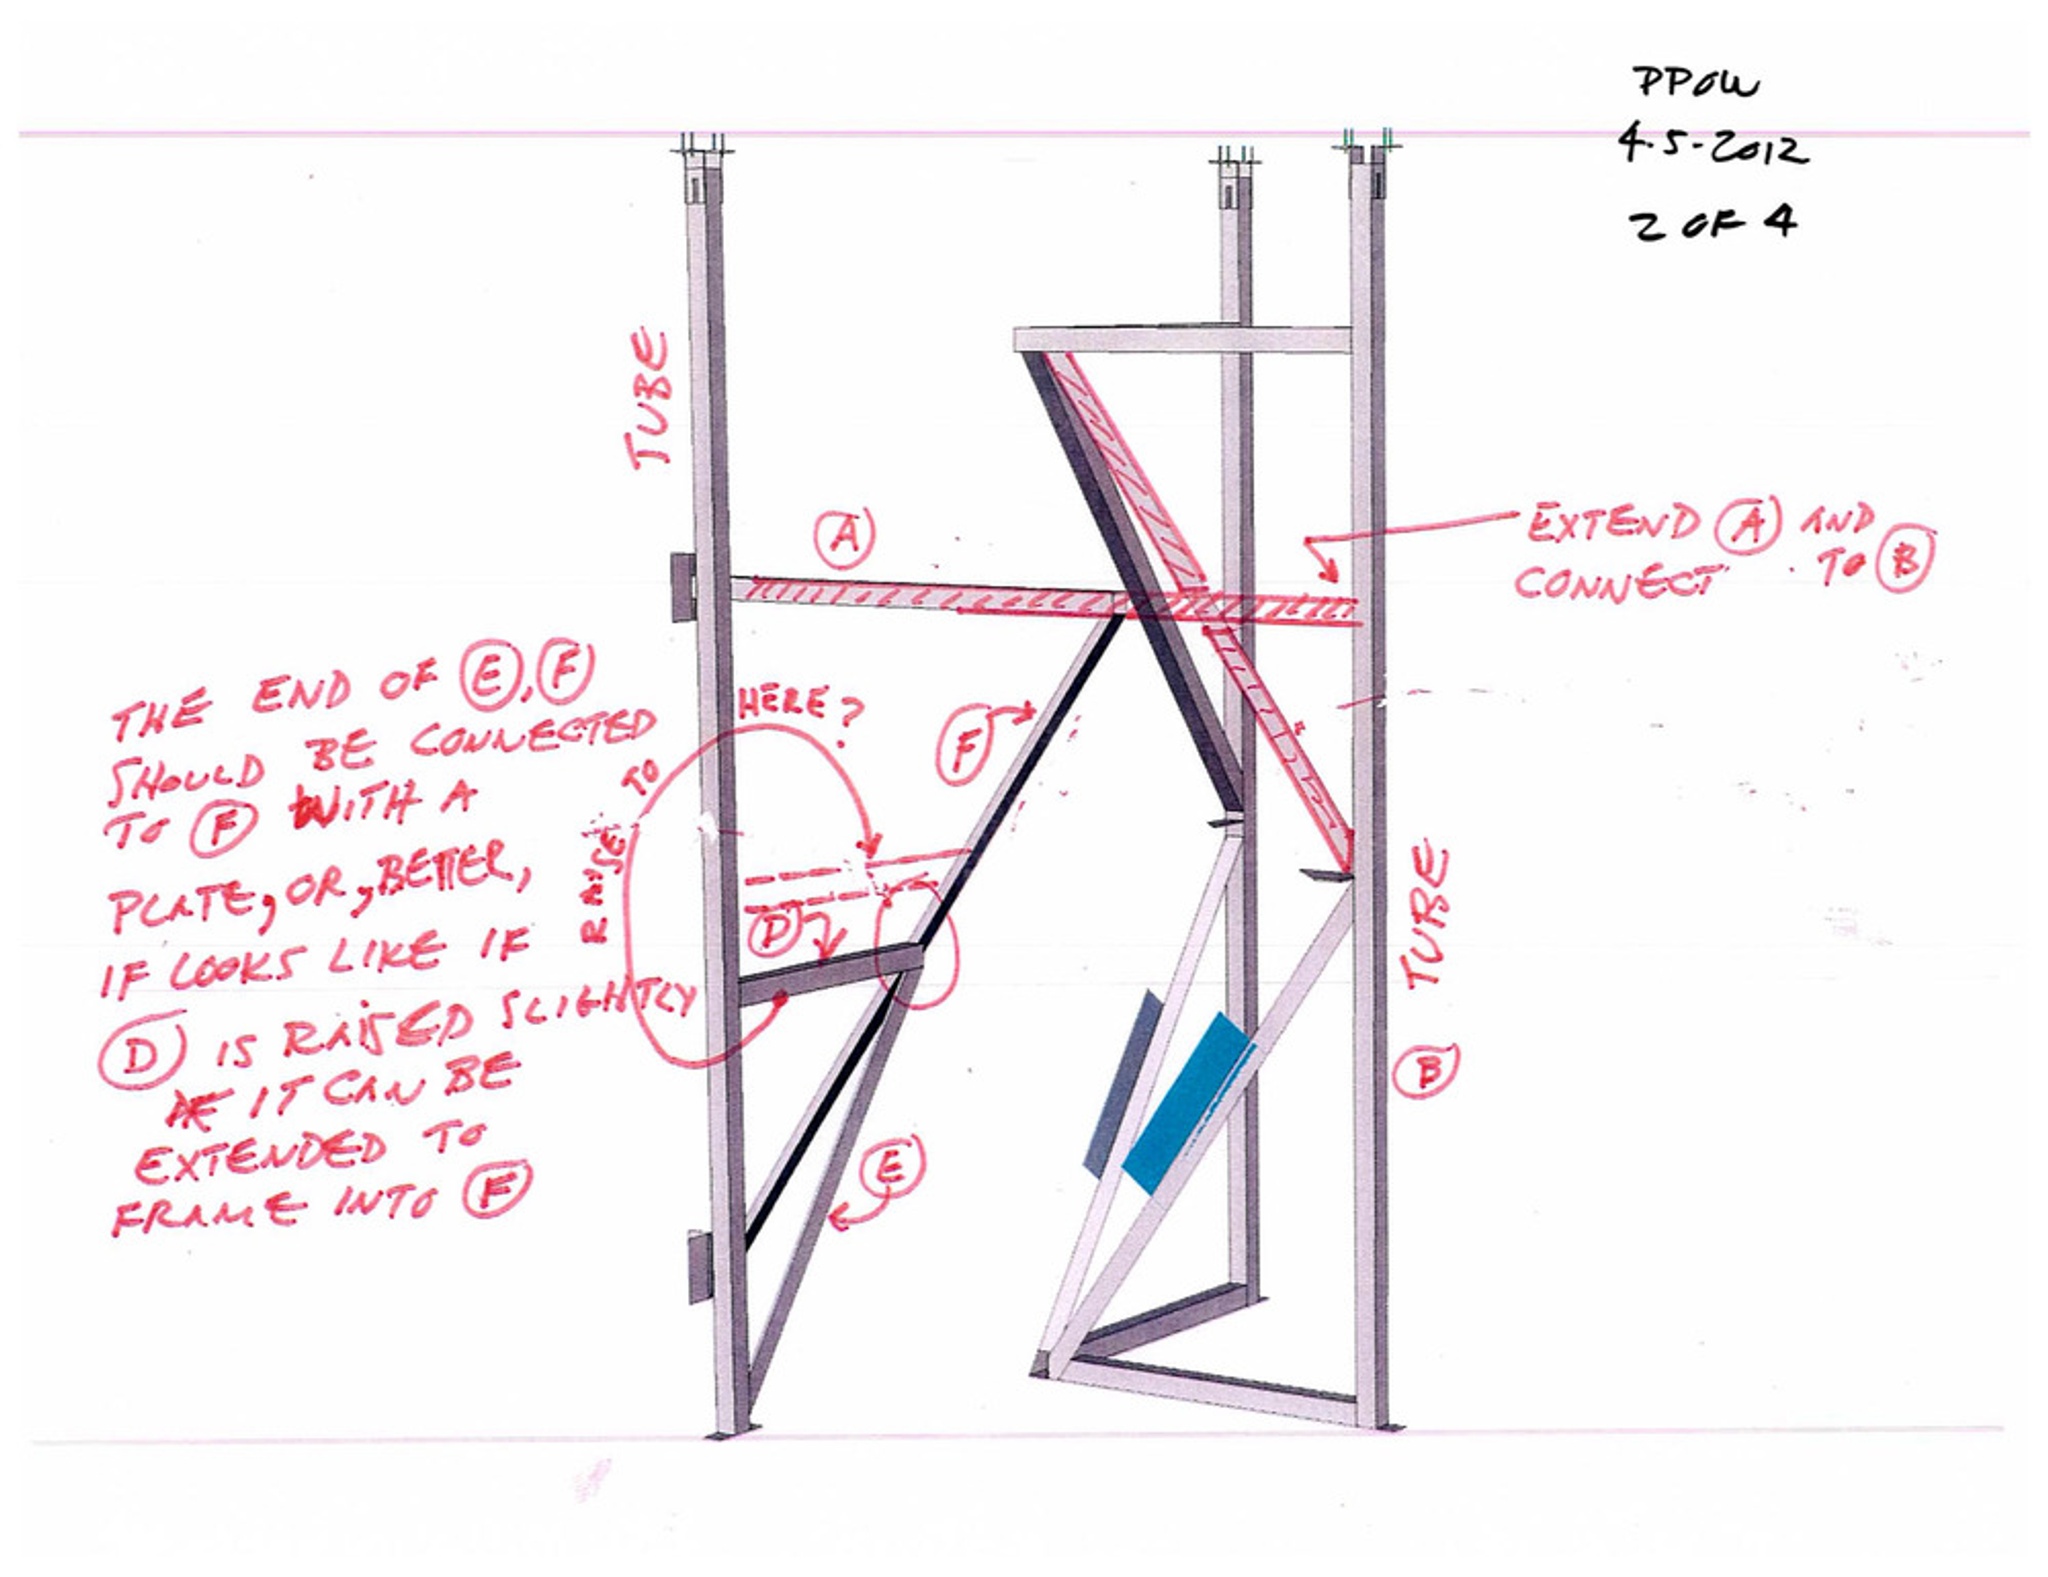 PPOW
4-5-2012
2 OF 4
TUBE
A
EXTEND A AND
CONNECT TO B
THE END OF E, F
SHOULD BE CONNECTED
TO F WITH A
PLATE, OR, BETTER,
IF LOOKS LIKE IF
D IS RAISED SLIGHTLY
IT CAN BE
EXTENDED TO
FRAME INTO F
RAISE TO
HERE?
F
D
E
TUBE
B